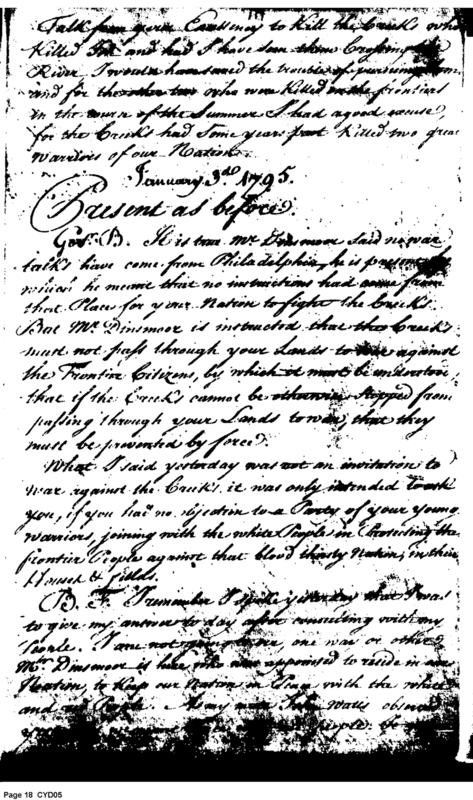 Talk from your Excellency to Kill the Creeks who
Killed and had I have seen them Crossing the
River I would have saved the trouble of pursuing
and for the two who were killed on the frontiers
in the of the Summer I had a good excuse,
for the Creeks had Some years past Killed two great
Warriors of our Nation.
January 3rd 1795.
Present as before.
Govr. B. It is true Mr. Dinsmoor said no war
talks have come from Philadelphia, he is present
he meant that no instructions had come from
that Place for your Nation to fight the Creeks
But Mr. Dinsmoor is instructed that the Creeks
must not pass through your Lands to war against
the Frontier Citizens, by which it must be understood
that if the Creeks cannot be otherwise stopped from
passing through your Lands to war, that they
must be prevented by force.
What I said yesterday was not an invitation to
War against the Creeks, it was only intended to ask
you, if you had no objection to a Party of your young
Warriors, joining with the white People in Protecting the
frontier People against that blood thirsty Nation, in their
Houses & fields.
B. F. I remember I spoke yesterday that I was
to give my answer to day after counciling with my
People. I am not one way or other
Mr. Dinsmoor is here who was appointed to reside in our
Nation, to keep our Nation in Peace with the white
and People. As my John Watts observed
people be
Page 18 CYD05